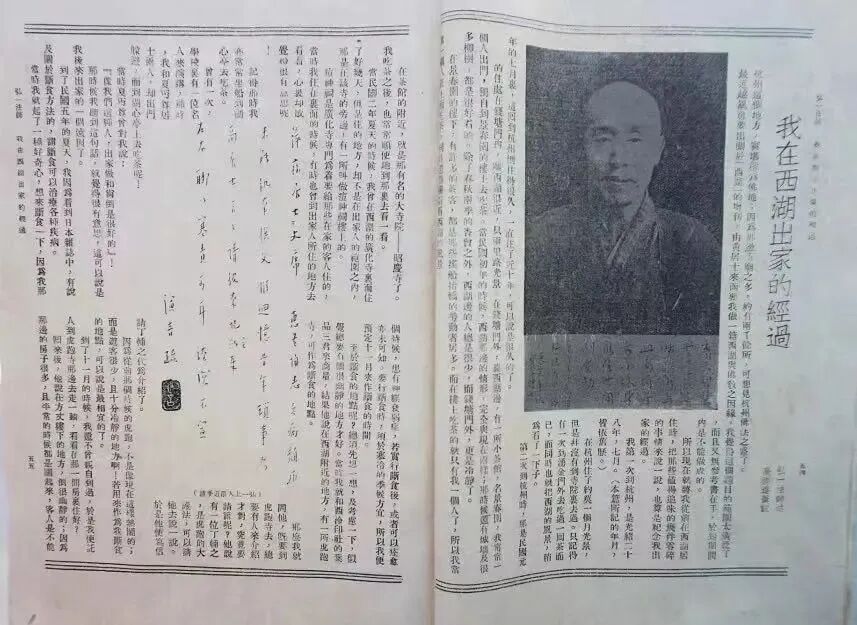 我在西湖出家的經過
弘一法師
杭州這個地方,實堪稱為佛地;因為那邊寺廟之多,約有兩千餘所,可想見杭州佛法之盛了。
最近越風社要出關於「西湖」的增刊,由黃居士來函要我做一篇西湖與佛教之因緣,
我覺得這個題目的範圍太廣泛了,
而且又無參考書在手,於短期間
內是不能做成的。
所以現在就將我從前在西湖居
住時,把那些值得追味的幾件零碎
的事情來說一說,也算是紀念我出
家的經過。
我第一次到杭州,是光緒二十
八年,七月。(本篇所記的年月,
皆依舊曆)
在杭州住了約莫一個月光景,
但是並沒有到寺院裏去過。只記得
有一次到湧金門外去吃過一回茶而
已,而同時也就把西湖的風景,稍
為看了一下子。
第二次到杭州時,那是民國元
年的七月裏,這回到杭州倒住得很久,一直住了近十年,可以說是很久的了。
的住處在錢塘門內,離西湖很近,只兩里路光景。在錢塘門外,靠西湖邊,有一所小茶館,名景春園,我常常一
個人出門,獨自到景春園的樓上去吃茶。當民國初年的時候,西湖那邊的情形,完全與現在兩樣;那時候還有城牆及很
多柳樹,都是很好看的。除了春秋兩季的香會之外,西湖邊的人總是很少,而錢塘門外,更是冷靜了。
在景春園的樓下,有許多的茶客,都是那些搖船抬轎的勞動者居多。而在樓上吃茶的就只有我一個人了,所以我常
弘一法師 我在西湖出家的經過
在茶館的附近,就是那有名的大寺院——昭慶寺了。
我吃茶之後,也常常順便地到那裏去看一看。
當民國二年夏天的時候,我曾在西湖的廣化寺裏面住
了好幾天,但是住的地方,却不是在出家人的範圍之內,
那是在該寺的旁邊,有一所叫做痘神祠樓上的。
痘神祠是廣化寺專門為着要給那些在家的客人住的,
當時我住在裏面的時候,有時也曾到出家人所住的地方去
看看,心裏却感
覺得很有意思呢
!
記得那時我
亦常常坐船到湖
心亭去吃茶。
曾有一次,
學校裏有一位名
人來演講,那時
,我和夏丏尊居
士兩人,却出門
躲避,而到湖心亭上去吃茶呢!
當時夏丏尊曾對我說:
『像我們這種人,出家做和尚倒是很好的』!
那時候我聽到這句話,就覺得很有意思,這可以說是
我後來出家的一個遠因了。
到了民國五年的夏天,我因為看到日本雜誌中,有說
及關於斷食方法的,謂斷食可以治療各種疾病。
當時我就起了一種好奇心,想來斷食一下,因為我那
個時候,患有神經衰弱症,若實行斷食後,或者可以痊愈
亦未可知。要行斷食時,須於寒冷的季候方宜,所以我便
預定十一月來作斷食的時間。
至於斷食的地點呢?總須先想一想,及考慮一下,似
覺總要有個很幽靜的地方才好。當時我就和西泠印社的葉
品三君來商量,結果他說在西湖附近的地方,有一所虎跑
寺,可作為斷食的地點。
(弘一上人最近手書)
那麼我就
問他,既要到
虎跑寺去,總
要有人來介紹
才對,究竟要
請誰呢?他說
有一位丁輔之
,是虎跑的大
護法,可以請
他去說一說。
於是他便寫信
請丁輔之代為介紹了。
因為從前那個時候的虎跑,不是像現在這樣熱鬧的;
而是遊客很少,且十分冷靜的地方啊。若用來作為我斷食
的地點,可以說是最相宜的了。
到了十一月的時候,我還不曾親自到過,於是我便託
人到虎跑寺那邊去走一趟,看看在那一間房裏住好?
回來後,他說在方丈樓下的地方,倒很幽靜的;因為
那邊的房子很多,且平常的時候都是關起來,客人是不能
五五